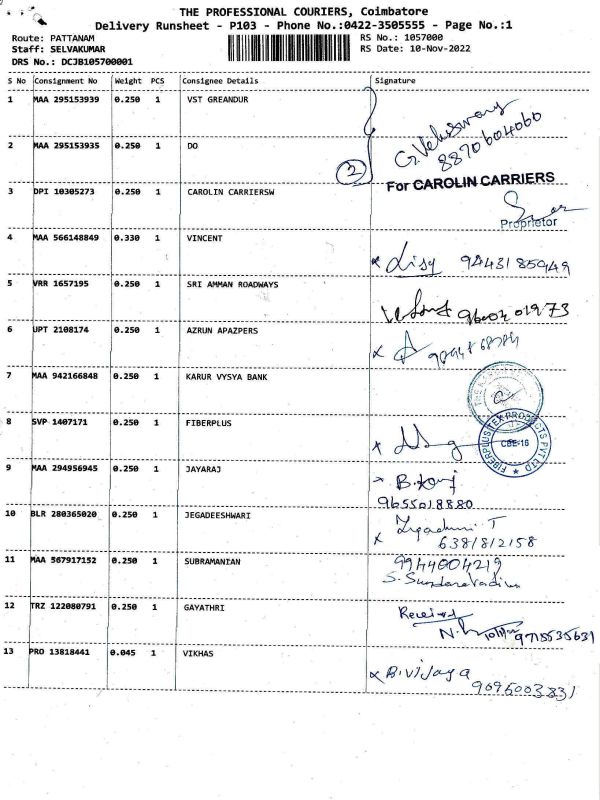 THE PROFESSIONAL COURIERS, Coimbatore
Delivery Runsheet - P103 - Phone No.:0422-3505555 - Page No.:1
Route: PATTANAM RS No.: 1057000
Staff: SELVAKUMAR RS Date: 10-Nov-2022
DRS No.: DCJB105700001
S No Consignment No Weight PCS Consignee Details Signature
1 MAA 295153939 0.250 1 VST GREANDUR
2 MAA 295153935 0.250 1 DO
2 8870604060
For CAROLIN CARRIERS
3 DPI 10305273 0.250 1 CAROLIN CARRIERSW
Proprietor
4 MAA 566148849 0.330 1 VINCENT
5 VRR 1657195 0.250 1 SRI AMMAN ROADWAYS
6 UPT 2108174 0.250 1 AZRUN APAZPERS
7 MAA 942166848 0.250 1 KARUR VYSYA BANK
8 SVP 1407171 0.250 1 FIBERPLUS
FIBERPLUS TEX PRODUCTS PVT LTD
CBE-16
9 MAA 294956945 0.250 1 JAYARAJ
9655018880
10 BLR 280365020 0.250 1 JEGADEESHWARI
6381812158
11 MAA 567917152 0.250 1 SUBRAMANIAN 9944004219
12 TRZ 122080791 0.250 1 GAYATHRI Received
9715535631
13 PRO 13818441 0.045 1 VIKHAS
B.Vijaya
9095003831